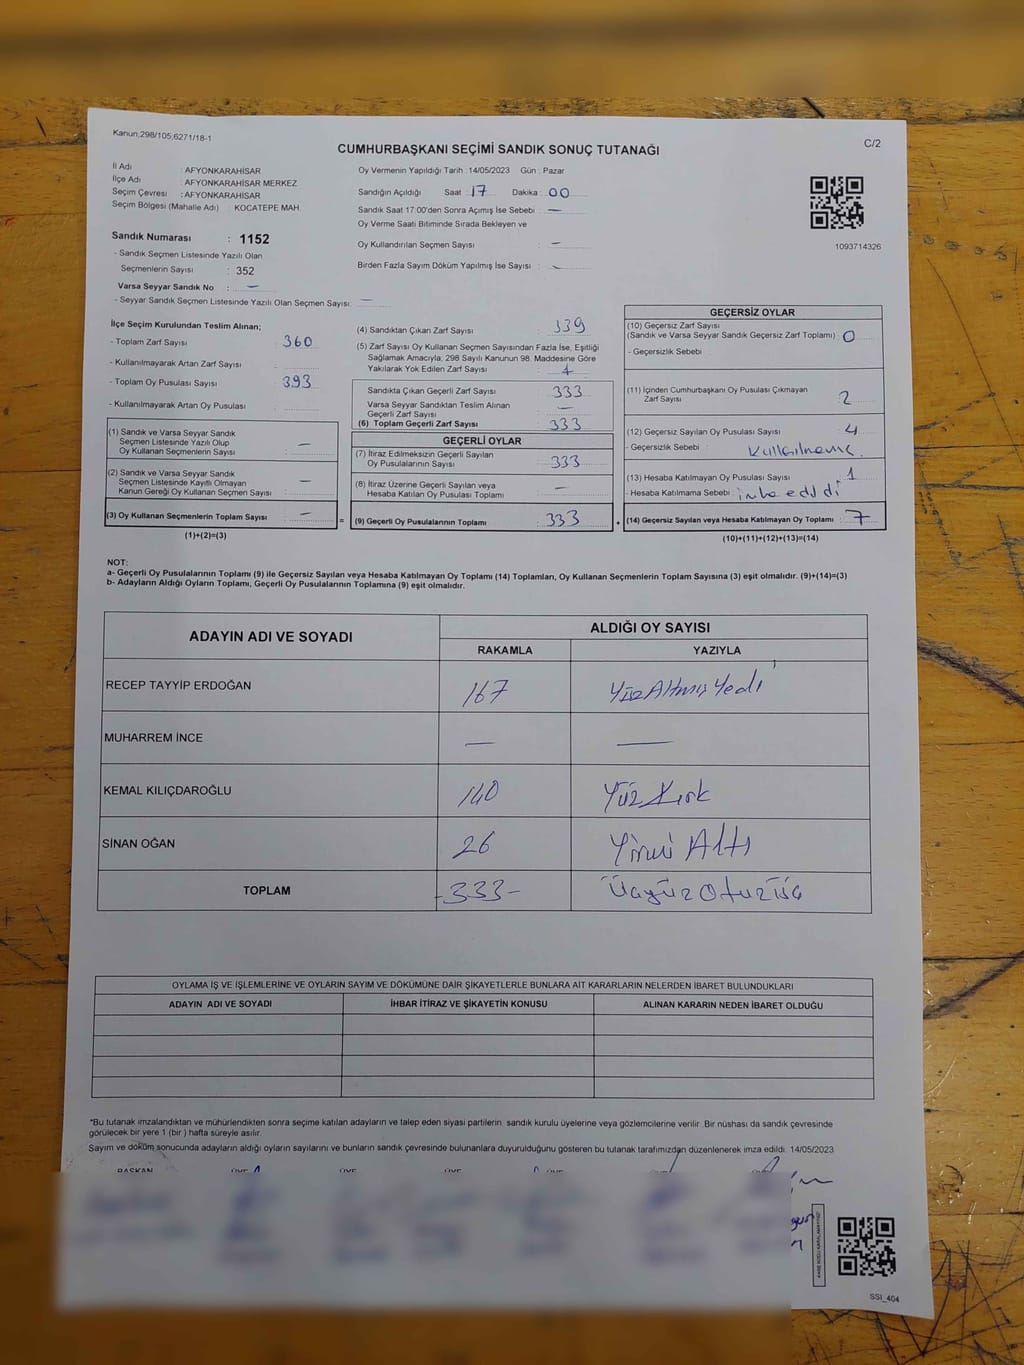 Kanun,298/105,6271/18-1
C/2
CUMHURBAŞKANI SEÇİMİ SANDIK SONUÇ TUTANAĞI
İl Adı : AFYONKARAHİSAR
İlçe Adı : AFYONKARAHİSAR MERKEZ
Seçim Çevresi : AFYONKARAHİSAR
Seçim Bölgesi (Mahalle Adı) : KOCATEPE MAH.
Sandık Numarası : 1152
- Sandık Seçmen Listesinde Yazılı Olan
Seçmenlerin Sayısı : 352
Varsa Seyyar Sandık No : —
- Seyyar Sandık Seçmen Listesinde Yazılı Olan Seçmen Sayısı: —
Oy Vermenin Yapıldığı Tarih : 14/05/2023 Gün : Pazar
Sandığın Açıldığı Saat : 17 Dakika : 00
Sandık Saat 17:00'den Sonra Açımış İse Sebebi : —
Oy Verme Saati Bitiminde Sırada Bekleyen ve
Oy Kullandırılan Seçmen Sayısı : —
Birden Fazla Sayım Döküm Yapılmış İse Sayısı : —
1093714326
İlçe Seçim Kurulundan Teslim Alınan;
- Toplam Zarf Sayısı : 360
- Kullanılmayarak Artan Zarf Sayısı :
- Toplam Oy Pusulası Sayısı : 393
- Kullanılmayarak Artan Oy Pusulası :
(1) Sandık ve Varsa Seyyar Sandık
Seçmen Listesinde Yazılı Olup
Oy Kullanan Seçmenlerin Sayısı : —
(2) Sandık ve Varsa Seyyar Sandık
Seçmen Listesinde Kayıtlı Olmayan
Kanun Gereği Oy Kullanan Seçmen Sayısı : —
(3) Oy Kullanan Seçmenlerin Toplam Sayısı : —
(1)+(2)=(3)
=
(4) Sandıktan Çıkan Zarf Sayısı : 339
(5) Zarf Sayısı Oy Kullanan Seçmen Sayısından Fazla İse, Eşitliği
Sağlamak Amacıyla; 298 Sayılı Kanunun 98. Maddesine Göre
Yakılarak Yok Edilen Zarf Sayısı :
Sandıkta Çıkan Geçerli Zarf Sayısı : 333
Varsa Seyyar Sandıktan Teslim Alınan
Geçerli Zarf Sayısı : —
(6) Toplam Geçerli Zarf Sayısı : 333
GEÇERLİ OYLAR
(7) İtiraz Edilmeksizin Geçerli Sayılan
Oy Pusulalarının Sayısı : 333
(8) İtiraz Üzerine Geçerli Sayılan veya
Hesaba Katılan Oy Pusulası Toplamı : —
(9) Geçerli Oy Pusulalarının Toplamı : 333
+
GEÇERSİZ OYLAR
(10) Geçersiz Zarf Sayısı
(Sandık ve Varsa Seyyar Sandık Geçersiz Zarf Toplamı) : 0
- Geçersizlik Sebebi :
(11) İçinden Cumhurbaşkanı Oy Pusulası Çıkmayan
Zarf Sayısı : 2
(12) Geçersiz Sayılan Oy Pusulası Sayısı : 4
- Geçersizlik Sebebi :
(13) Hesaba Katılmayan Oy Pusulası Sayısı : 1
- Hesaba Katılmama Sebebi :
(14) Geçersiz Sayılan veya Hesaba Katılmayan Oy Toplamı : 7
(10)+(11)+(12)+(13)=(14)
NOT:
a- Geçerli Oy Pusulalarının Toplamı (9) ile Geçersiz Sayılan veya Hesaba Katılmayan Oy Toplamı (14) Toplamları, Oy Kullanan Seçmenlerin Toplam Sayısına (3) eşit olmalıdır. (9)+(14)=(3)
b- Adayların Aldığı Oyların Toplamı, Geçerli Oy Pusulalarının Toplamına (9) eşit olmalıdır.
ADAYIN ADI VE SOYADI ALDIĞI OY SAYISI
RAKAMLA YAZIYLA
RECEP TAYYİP ERDOĞAN 167 Yüz Altmış Yedi
MUHARREM İNCE — —
KEMAL KILIÇDAROĞLU 140 Yüz Kırk
SİNAN OĞAN 26 Yirmi Altı
TOPLAM -333- Üçyüz Otuzüç
OYLAMA İŞ VE İŞLEMLERİNE VE OYLARIN SAYIM VE DÖKÜMÜNE DAİR ŞİKAYETLERLE BUNLARA AİT KARARLARIN NELERDEN İBARET BULUNDUKLARI
ADAYIN ADI VE SOYADI İHBAR İTİRAZ VE ŞİKAYETİN KONUSU ALINAN KARARIN NEDEN İBARET OLDUĞU
*Bu tutanak imzalandıktan ve mühürlendikten sonra seçime katılan adayların ve talep eden siyasi partilerin sandık kurulu üyelerine veya gözlemcilerine verilir. Bir nüshası da sandık çevresinde
görülecek bir yere 1 (bir ) hafta süreyle asılır.
Sayım ve döküm sonucunda adayların aldığı oyların sayılarını ve bunların sandık çevresinde bulunanlara duyurulduğunu gösteren bu tutanak tarafımızdan düzenlenerek imza edildi. 14/05/2023
BAŞKAN ÜYE ÜYE ÜYE ÜYE
SSI_404